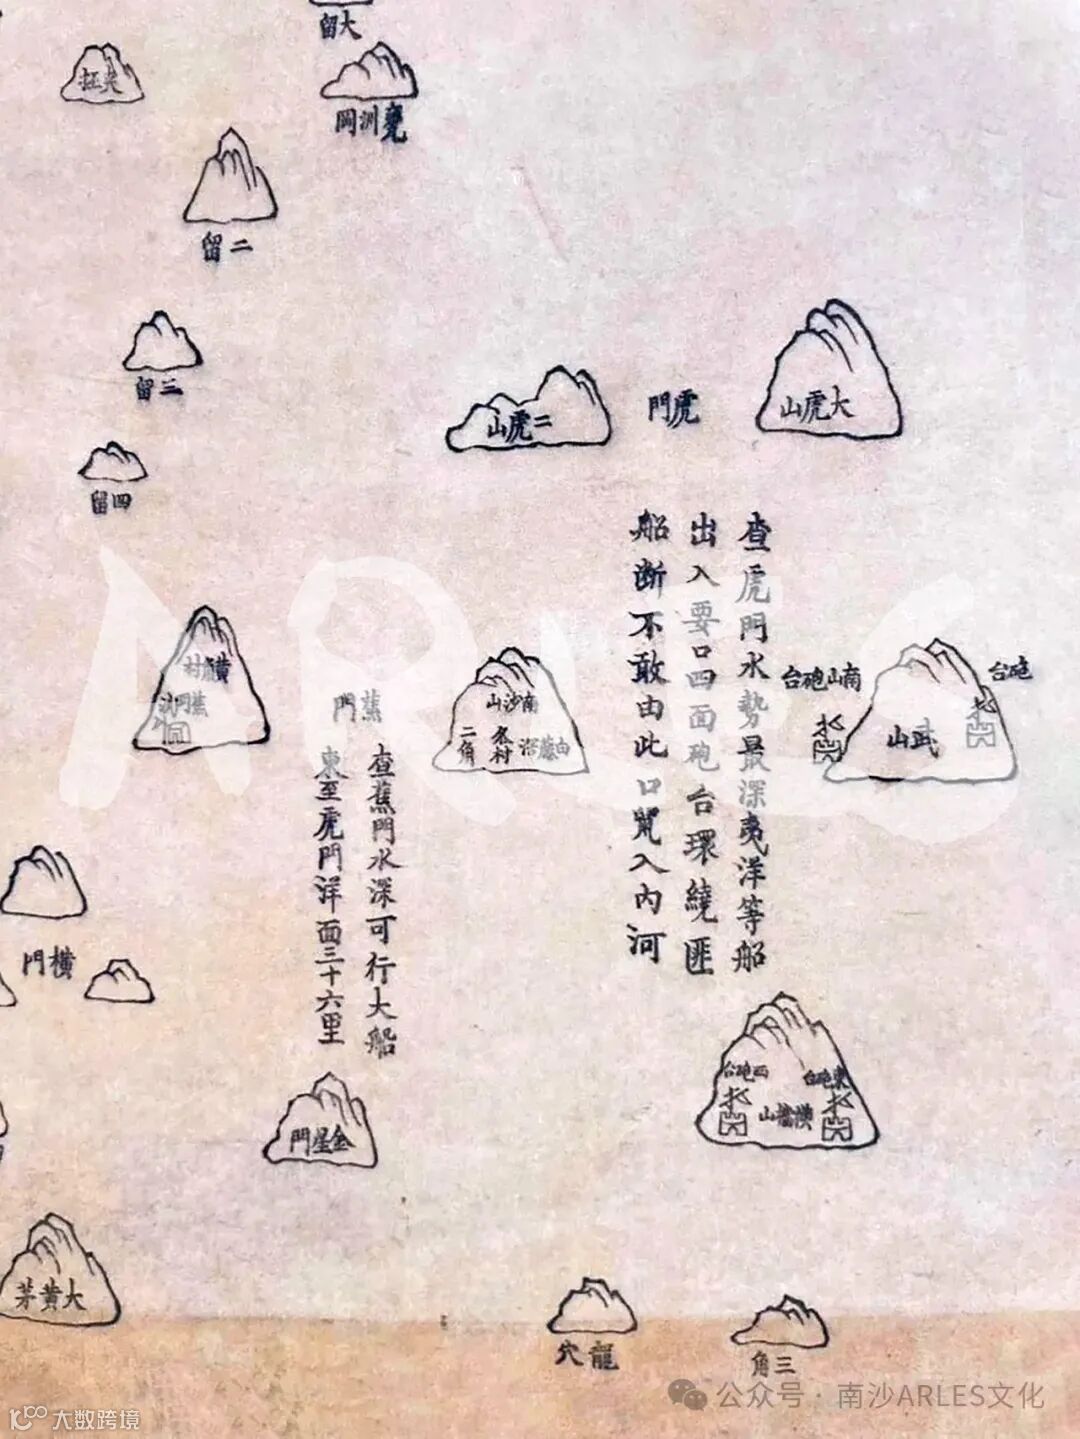 大留
尖扛
甕洲岡
二留
三留
四留
大虎山
虎門
二虎山
查虎門水勢最深夷洋等船
出入要口四面砲台環繞匪
船斷不敢由此口駕入內河
砲台
南山砲台
武山
南沙山
二角
村
蕉門
查蕉門水深可行大船
東至虎門洋面三十六里
黃角村
蕉門汛
橫門
東砲台
西砲台
橫檔山
金星門
大黃茅
龍穴
三角
ARLES
公众号·南沙ARLES文化
大数跨境